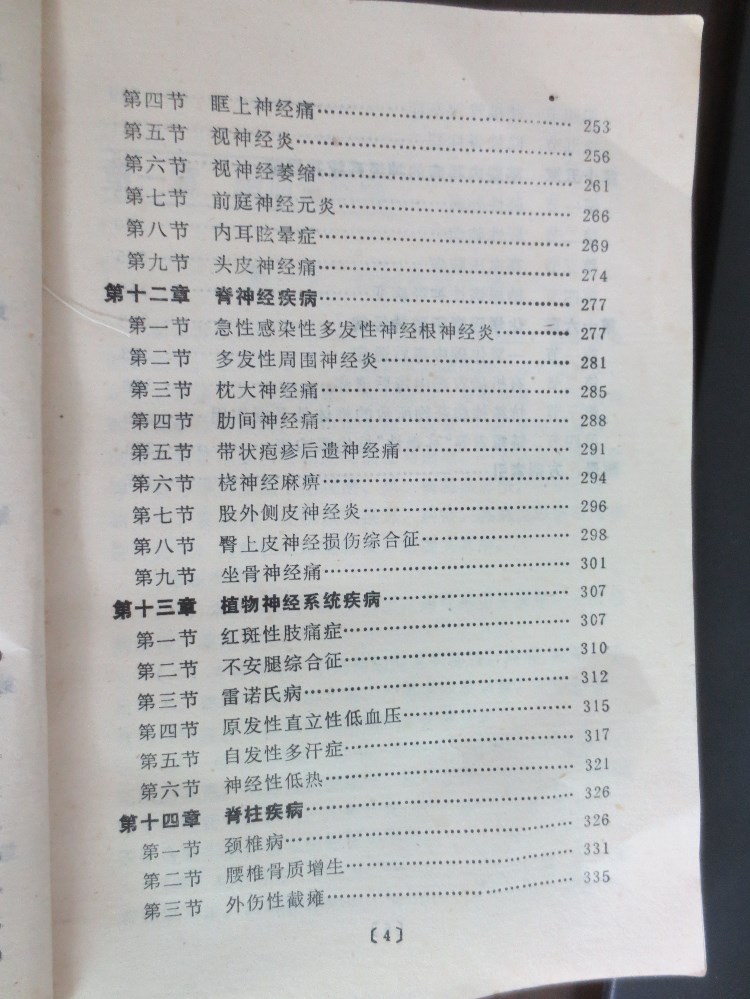 第四节 眶上神经痛……………………………… 253
第五节 视神经炎……………………………… 256
第六节 视神经萎缩……………………………… 261
第七节 前庭神经元炎……………………………… 266
第八节 内耳眩晕症……………………………… 269
第九节 头皮神经痛……………………………… 274
第十二章 脊神经疾病……………………………… 277
第一节 急性感染性多发性神经根神经炎………… 277
第二节 多发性周围神经炎……………………… 281
第三节 枕大神经痛……………………………… 285
第四节 肋间神经痛……………………………… 288
第五节 带状疱疹后遗神经痛…………………… 291
第六节 桡神经麻痹……………………………… 294
第七节 股外侧皮神经炎………………………… 296
第八节 臀上皮神经损伤综合征………………… 298
第九节 坐骨神经痛……………………………… 301
第十三章 植物神经系统疾病……………………… 307
第一节 红斑性肢痛症…………………………… 307
第二节 不安腿综合征…………………………… 310
第三节 雷诺氏病………………………………… 312
第四节 原发性直立性低血压…………………… 315
第五节 自发性多汗症…………………………… 317
第六节 神经性低热……………………………… 321
第十四章 脊柱疾病………………………………… 326
第一节 颈椎病…………………………………… 326
第二节 腰椎骨质增生…………………………… 331
第三节 外伤性截瘫……………………………… 335
〔4〕